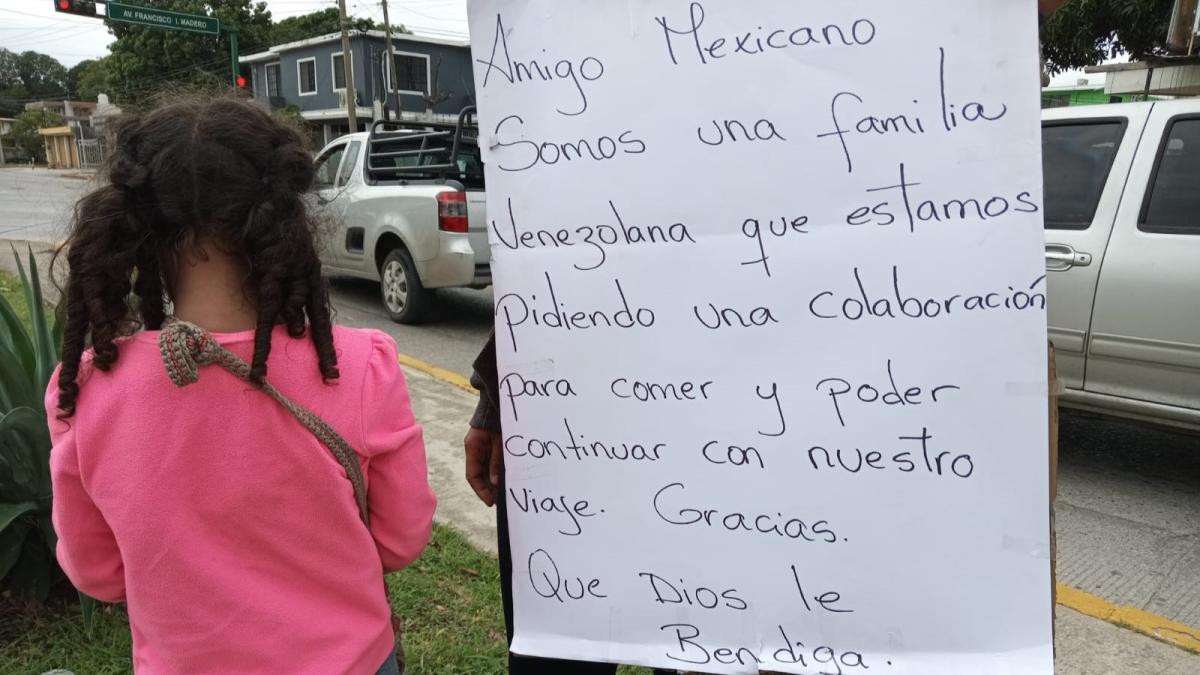 AV. FRANCISCO I. MADERO
Amigo Mexicano
Somos una familia
Venezolana que estamos
pidiendo una colaboración
para comer y poder
continuar con nuestro
viaje. Gracias.
Que Dios le
Bendiga.